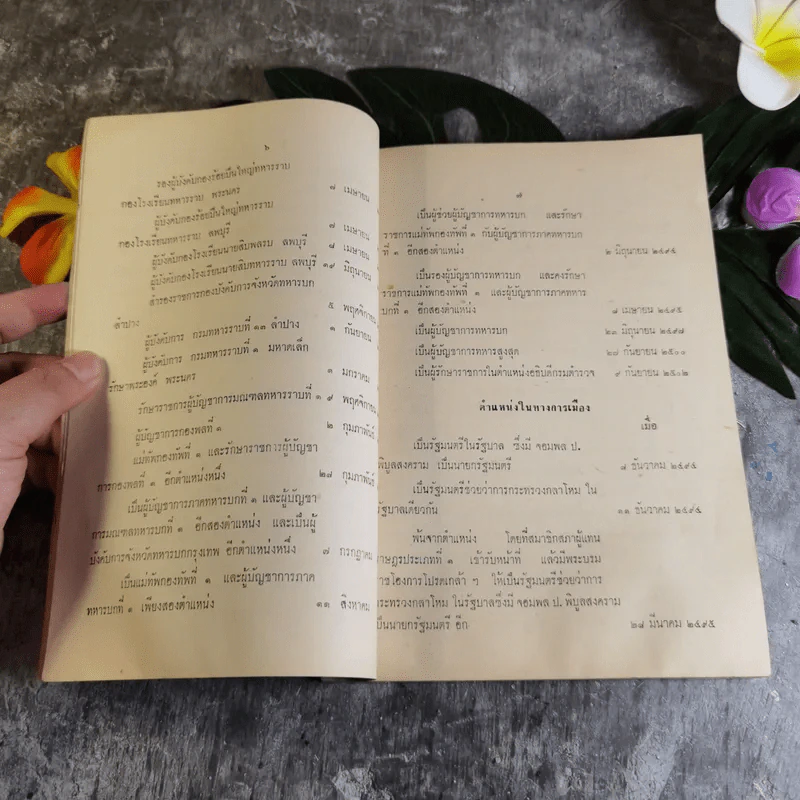 ๖
รองผู้บังคับกองร้อยปืนใหญ่ทหารราบ
กองโรงเรียนทหารราบ พระนคร ๗ เมษายน
ผู้บังคับกองร้อยปืนใหญ่ทหารราบ
กองโรงเรียนทหารราบ ลพบุรี ๗ เมษายน
ผู้บังคับกองโรงเรียนนายสิบพลรบ ลพบุรี ๘ เมษายน
ผู้บังคับกองโรงเรียนนายสิบทหารราบ ลพบุรี ๑๙ มิถุนายน
สำรองราชการกองบังคับการจังหวัดทหารบก
ลำปาง ๕ พฤศจิกายน
ผู้บังคับการ กรมทหารราบที่ ๑๓ ลำปาง ๑ กันยายน
ผู้บังคับการ กรมทหารราบที่ ๑ มหาดเล็ก
รักษาพระองค์ พระนคร ๑ มกราคม
รักษาราชการผู้บัญชาการมณฑลทหารราบที่ ๑ ๙ พฤศจิกายน
ผู้บัญชาการกองพลที่ ๑ ๒ กุมภาพันธ์
แม่ทัพกองทัพที่ ๑ และรักษาราชการผู้บัญชา
การกองพลที่ ๑ อีกตำแหน่งหนึ่ง ๒๘ กุมภาพันธ์
เป็นผู้บัญชาการภาคทหารบกที่ ๑ และผู้บัญชา
การมณฑลทหารบกที่ ๑ อีกสองตำแหน่ง และเป็นผู้
บังคับการจังหวัดทหารบกกรุงเทพ อีกตำแหน่งหนึ่ง ๗ กรกฎาคม
เป็นแม่ทัพกองทัพที่ ๑ และผู้บัญชาการภาค
ทหารบกที่ ๑ เพียงสองตำแหน่ง ๑๑ สิงหาคม
๗
เป็นผู้ช่วยผู้บัญชาการทหารบก และรักษา
ราชการแม่ทัพกองทัพที่ ๑ กับผู้บัญชาการภาคทหารบก
ที่ ๑ อีกสองตำแหน่ง ๒ มิถุนายน ๒๔๙๕
เป็นรองผู้บัญชาการทหารบก และคงรักษา
ราชการแม่ทัพกองทัพที่ ๑ และผู้บัญชาการภาคทหาร
บกที่ ๑ อีกสองตำแหน่ง ๗ เมษายน ๒๔๙๕
เป็นผู้บัญชาการทหารบก ๒๓ มิถุนายน ๒๔๙๗
เป็นผู้บัญชาการทหารสูงสุด ๒๗ กันยายน ๒๕๐๐
เป็นผู้รักษาราชการในตำแหน่งอธิบดีกรมตำรวจ ๙ กันยายน ๒๕๐๒
ตำแหน่งในทางการเมือง
เมื่อ
เป็นรัฐมนตรีในรัฐบาล ซึ่งมี จอมพล ป.
พิบูลสงคราม เป็นนายกรัฐมนตรี ๘ ธันวาคม ๒๔๙๕
เป็นรัฐมนตรีช่วยว่าการกระทรวงกลาโหม ใน
รัฐบาลเดียวกัน ๑๑ ธันวาคม ๒๔๙๕
พ้นจากตำแหน่ง โดยที่สมาชิกสภาผู้แทน
าษฎรประเภทที่ ๑ เข้ารับหน้าที่ แล้วมีพระบรม
ราชโองการโปรดเกล้า ๆ ให้เป็นรัฐมนตรีช่วยว่าการ
กระทรวงกลาโหม ในรัฐบาลซึ่งมี จอมพล ป. พิบูลสงคราม
เป็นนายกรัฐมนตรี อีก ๒๘ มีนาคม ๒๔๙๕